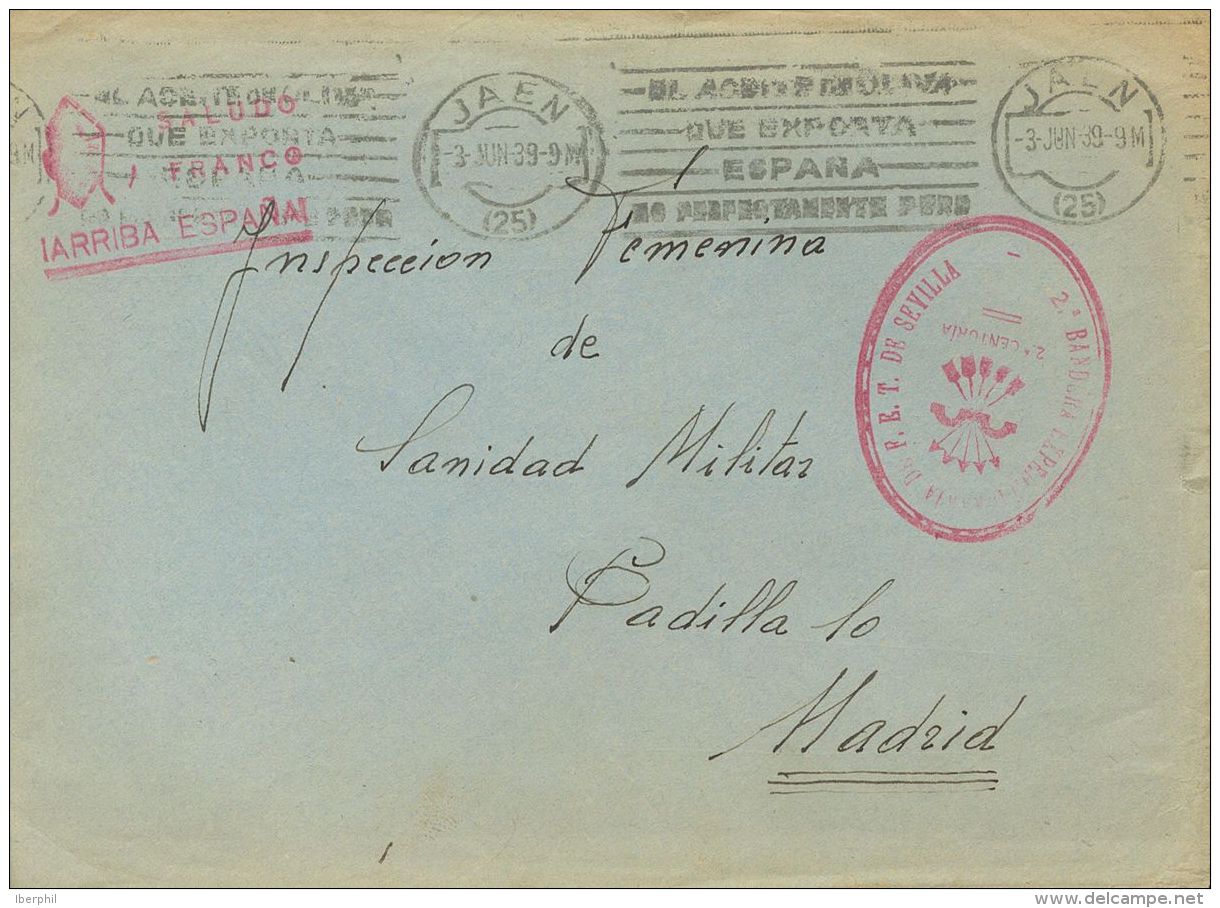 SALUDO
FRANCO
¡ARRIBA ESPAÑA!
EL ACEITE DE OLIVA
QUE EXPORTA
ESPAÑA
JAEN
-3-JUN-39-9M
(25)
EL ACEITE DE OLIVA
QUE EXPORTA
ESPAÑA
ES PERFECTAMENTE PURO
JAEN
-3-JUN-39-9M
(25)
Inspeccion Femenina
de
Sanidad Militar
Padilla
Madrid
2.ª BANDERA EXPEDICIONARIA DE F. E. T. DE SEVILLA
2.ª CENTURIA
Iberphil
delcampe.net